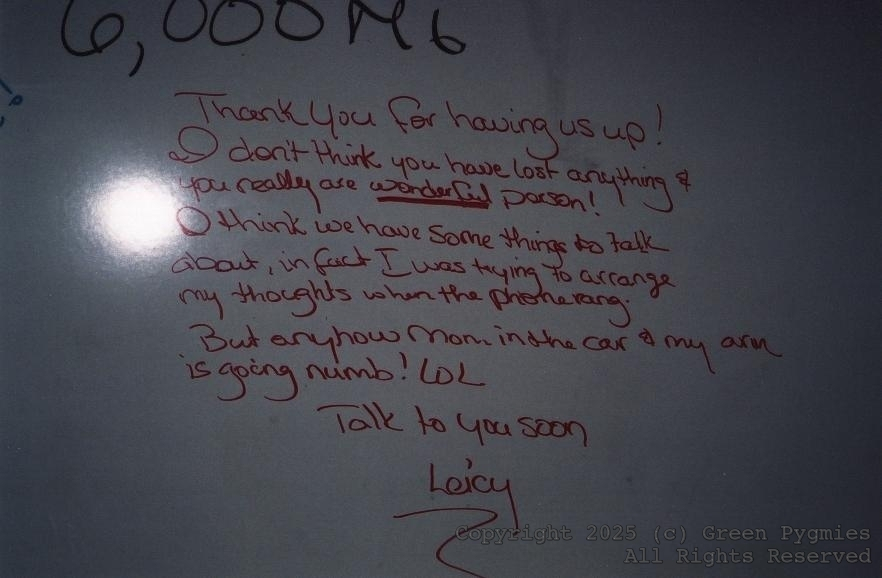 6,000 Mb
Thank you for having us up!
I don't think you have lost anything &
you really are wonderful person!
I think we have some things to talk
about, in fact I was trying to arrange
my thoughts when the phone rang.
But anyhow Mom in the car & my arm
is going numb! LOL
Talk to you soon
Leicy
Copyright 2025 (c) Green Pygmies
All Rights Reserved